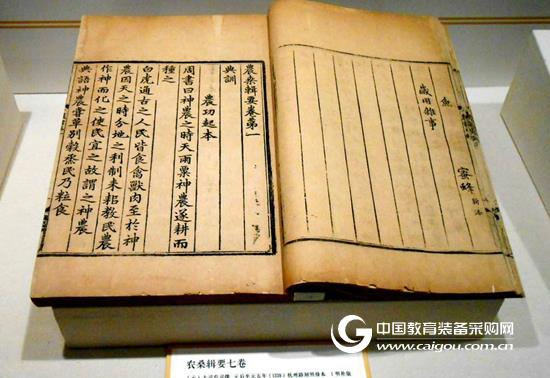 魚 蜜蜂 新添
歲用雜事
農桑輯要卷第一
典訓
農功起本
周書曰神農之時天雨粟神農遂耕而
種之
白虎通古之人民皆食禽獸肉至於神
農因天之時分地之利制耒耜教民農
作神而化之使民宜之故謂之神農
典語神農嘗草別穀烝民乃粒食
农桑辑要七卷
元后至元五年(1339)杭州路刻明修本
中国教育装备采购网